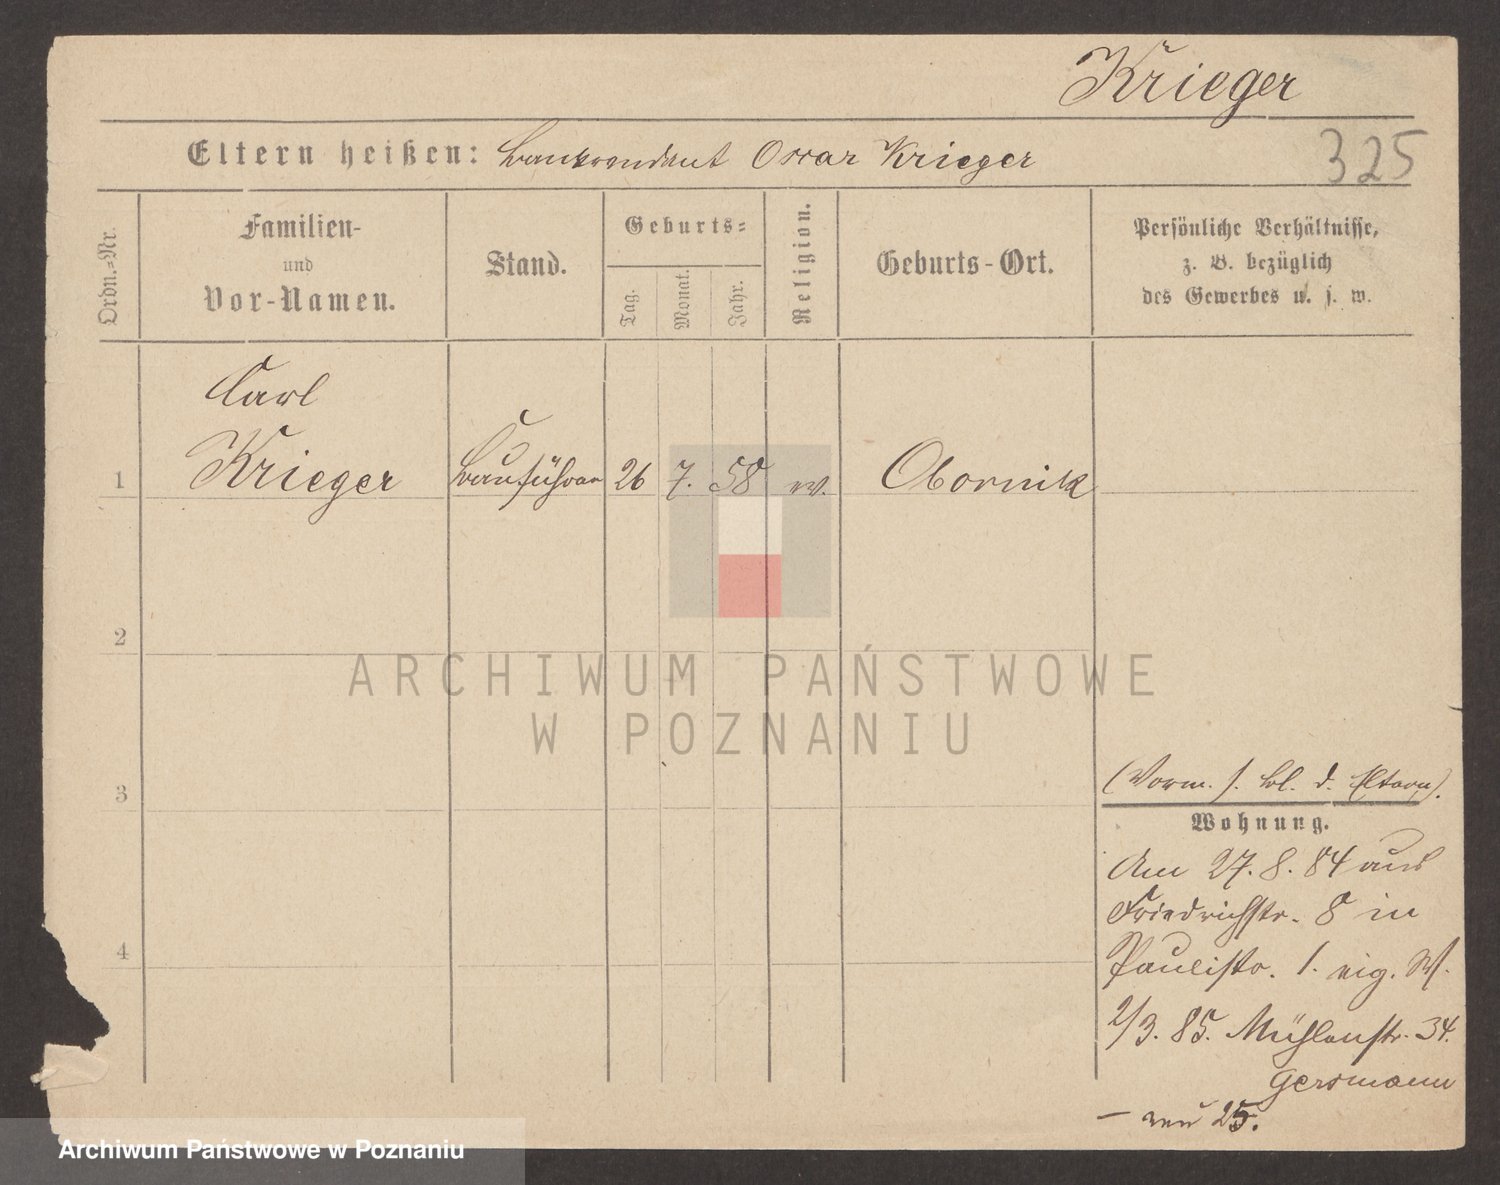 Krieger
325
Eltern heißen: Bankrendant Oscar Krieger
Ordn.=Nr.
Familien-
und
Vor-Namen.
Stand.
Geburts=
Tag.
Monat.
Jahr.
Religion.
Geburts-Ort.
Persönliche Verhältnisse,
z. B. bezüglich
des Gewerbes u. s. w.
Carl
1 Krieger Bauführer 26 7. 58 ev. Obornik
2
3
4
(Vorm. s. Bl. d. Eltern).
Wohnung.
Am 27. 8. 84 aus
Friedrichstr. 8 in
Paulistr. 1. eig. W.
2/3. 85. Mühlenstr. 34.
Gersmann
— neu 25.
ARCHIWUM PAŃSTWOWE
W POZNANIU
Archiwum Państwowe w Poznaniu